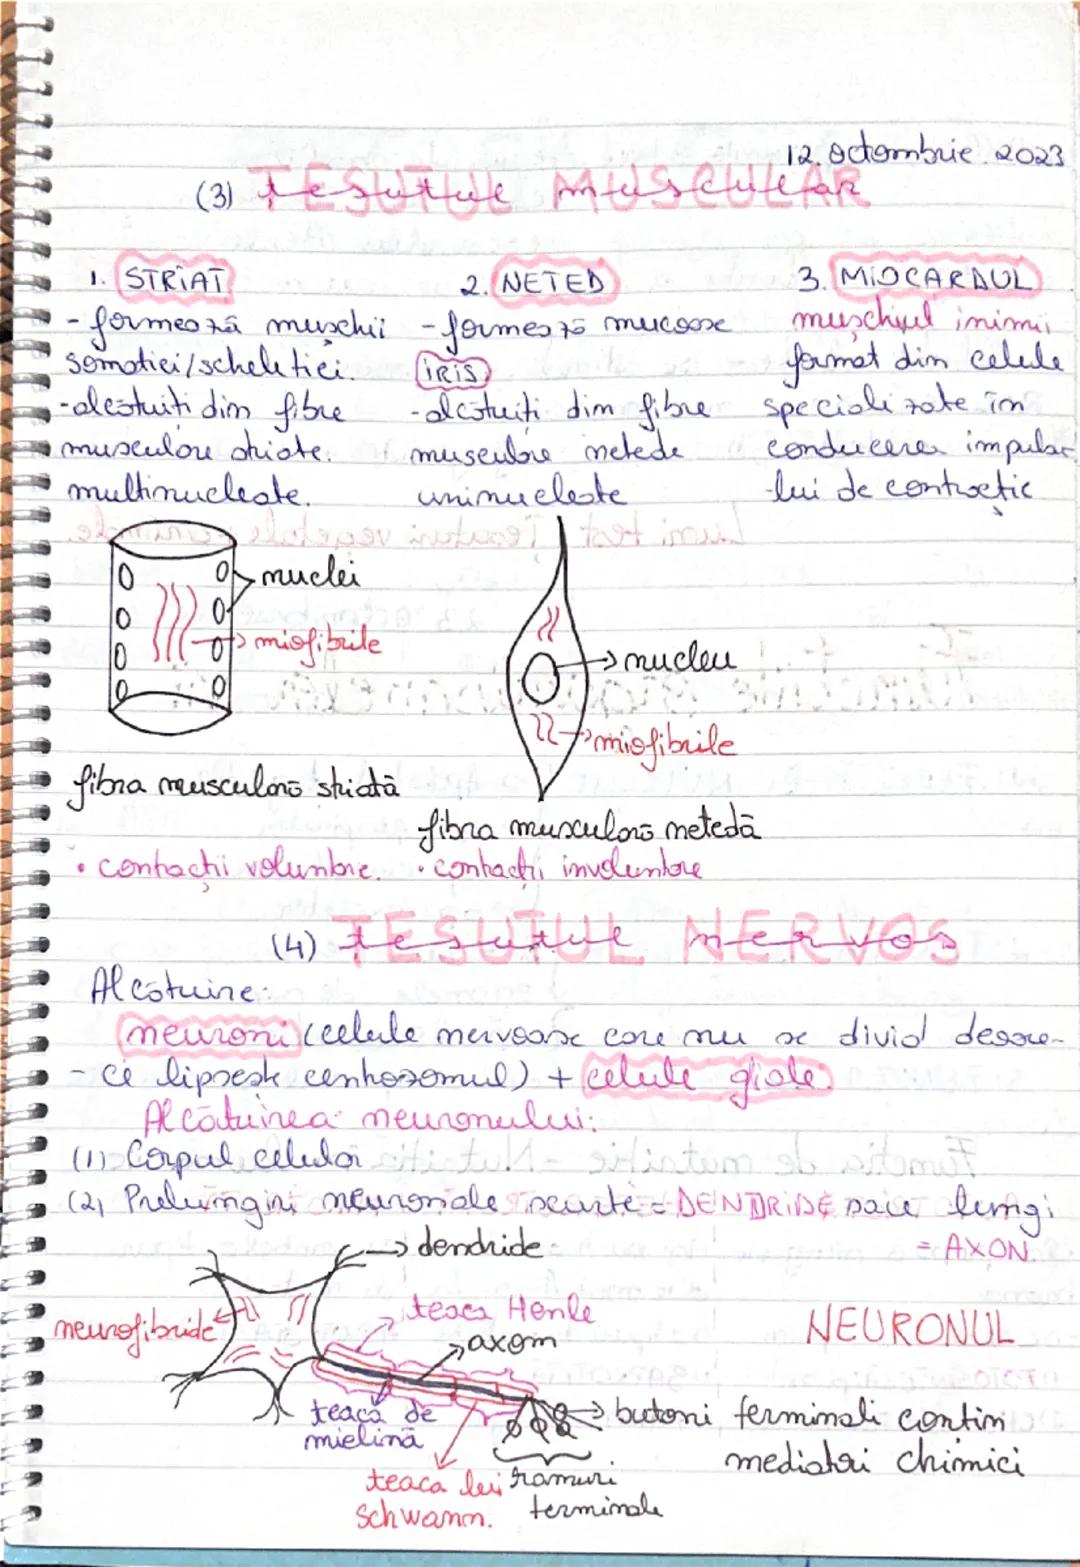 12. Octombrie 2023
(3) ȚESUTUL MUSCULAR
1. STRIAT
- formează mușchii
somatici/scheletici.
- alcătuiți din fibre
musculare striate.
multinucleate.
nuclei
miofibrile
fibra musculară striată
• contracții voluntare.
2. NETED
- formează mucoase
IRIS
- alcătuiți din fibre
musculare netede
uninucleate
nucleu
miofibrile
fibra musculară netedă
• contracții involuntare
3. MIOCARDUL
mușchiul inimii
format din celule
specializate în
conducerea impulsu-
lui de contracție
(4) ȚESUTUL NERVOS
Alcătuire:
neuroni (celule nervoase care nu se divid deoare-
- ce lipsesk centrozomul) + celule gliale
Alcătuirea neuronului:
(1) Corpul celular
(2) Prelungiri neuronale scurte = DENDRIDE sau lungi
= AXON
dendride
neurofibride
teaca Henle
axom
NEURONUL
teacă de
mielină
butoni terminali contin
mediatori chimici
teaca lui
Schwann.
ramuri
terminale